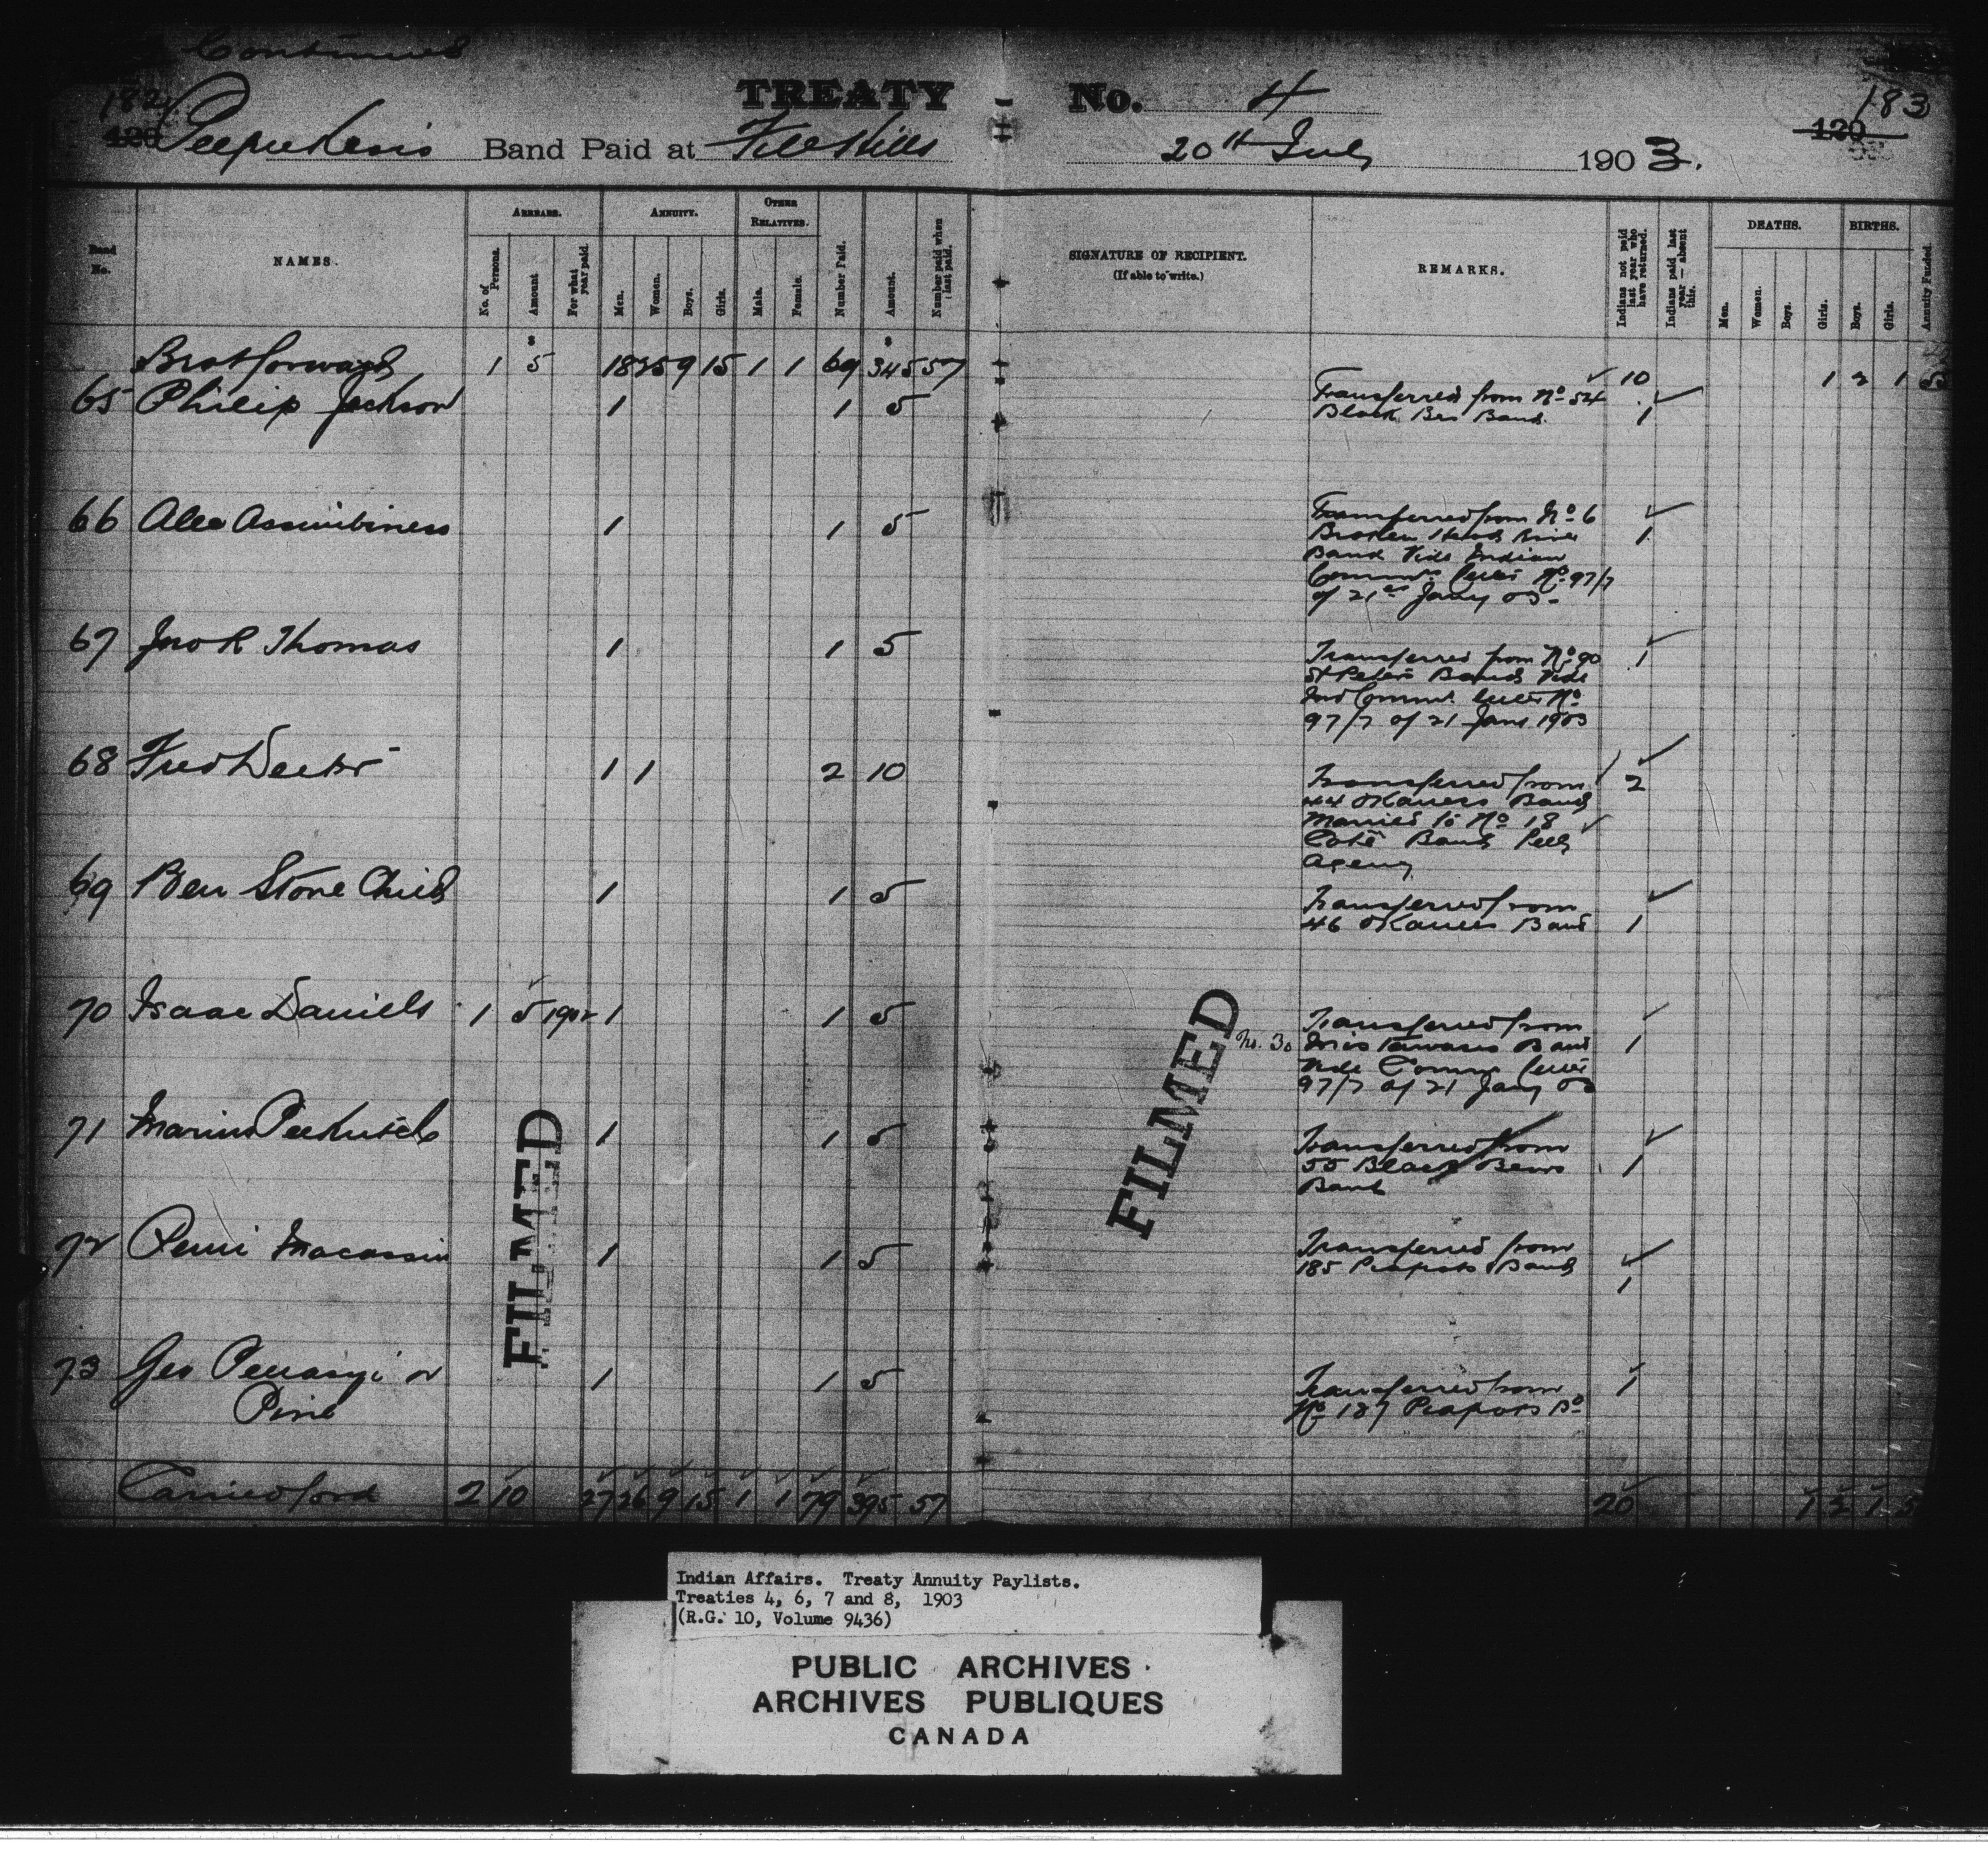 Continued
182 TREATY No. 4 183
120 Peepeekesis Band Paid at File Hills 20th July 1903. 120
Band No. NAMES. ARREARS. ANNUITY. OTHER RELATIVES. Number Paid. Amount. Number paid when last paid. SIGNATURE OF RECIPIENT. (If able to write.) REMARKS. Indians not paid last year who have returned. Indians paid last year — absent this. DEATHS. BIRTHS. Annuity Funded.
No. of Persons. Amount For what year paid. Men. Women. Boys. Girls. Male. Female. Men. Women. Boys. Girls. Boys. Girls.
Brot forward 1 5 18 25 9 15 1 1 69 345 57 10 1 2 1
65 Philip Jackson 1 1 5 Transferred from No 54
Black Brs Band. 1
66 Alex Assinibiness 1 1 5 Transferred from No 6
Broken Head River 1
Band Vide Indian
Commrs letter No 97/7
of 21st Jany 03-
67 Jno R Thomas 1 1 5 Transferred from No 90 1
St Peters Band Vide
Ind Commrs letter No
97/7 of 21 Jany 1903
68 Fred Deeter 1 1 2 10 Transferred from 2
44 OKanees Band
Married to No 18
Coté Band Pelly
Agency
69 Ben Stone Child 1 1 5 Transferred from
46 OKanees Band 1
70 Isaac Daniels 1 5 1902 1 1 5 Transferred from
No. 30 Band 1
Vide Comm letter
97/7 of 21 Jany 03
71 1 1 5 Transferred from
55 Black Bears 1
Band
72 Macassin 1 1 5 Transferred from
185 Piapots Band
1
73 Geo or 1 1 5 Transferred from 1
Pine No 187 Piapots Bd
Carried ford 2 10 27 26 9 15 1 1 79 395 57 20 1 2 1 5
FILMED
FILMED
Indian Affairs. Treaty Annuity Paylists.
Treaties 4, 6, 7 and 8, 1903
(R.G. 10, Volume 9436)
PUBLIC ARCHIVES
ARCHIVES PUBLIQUES
CANADA